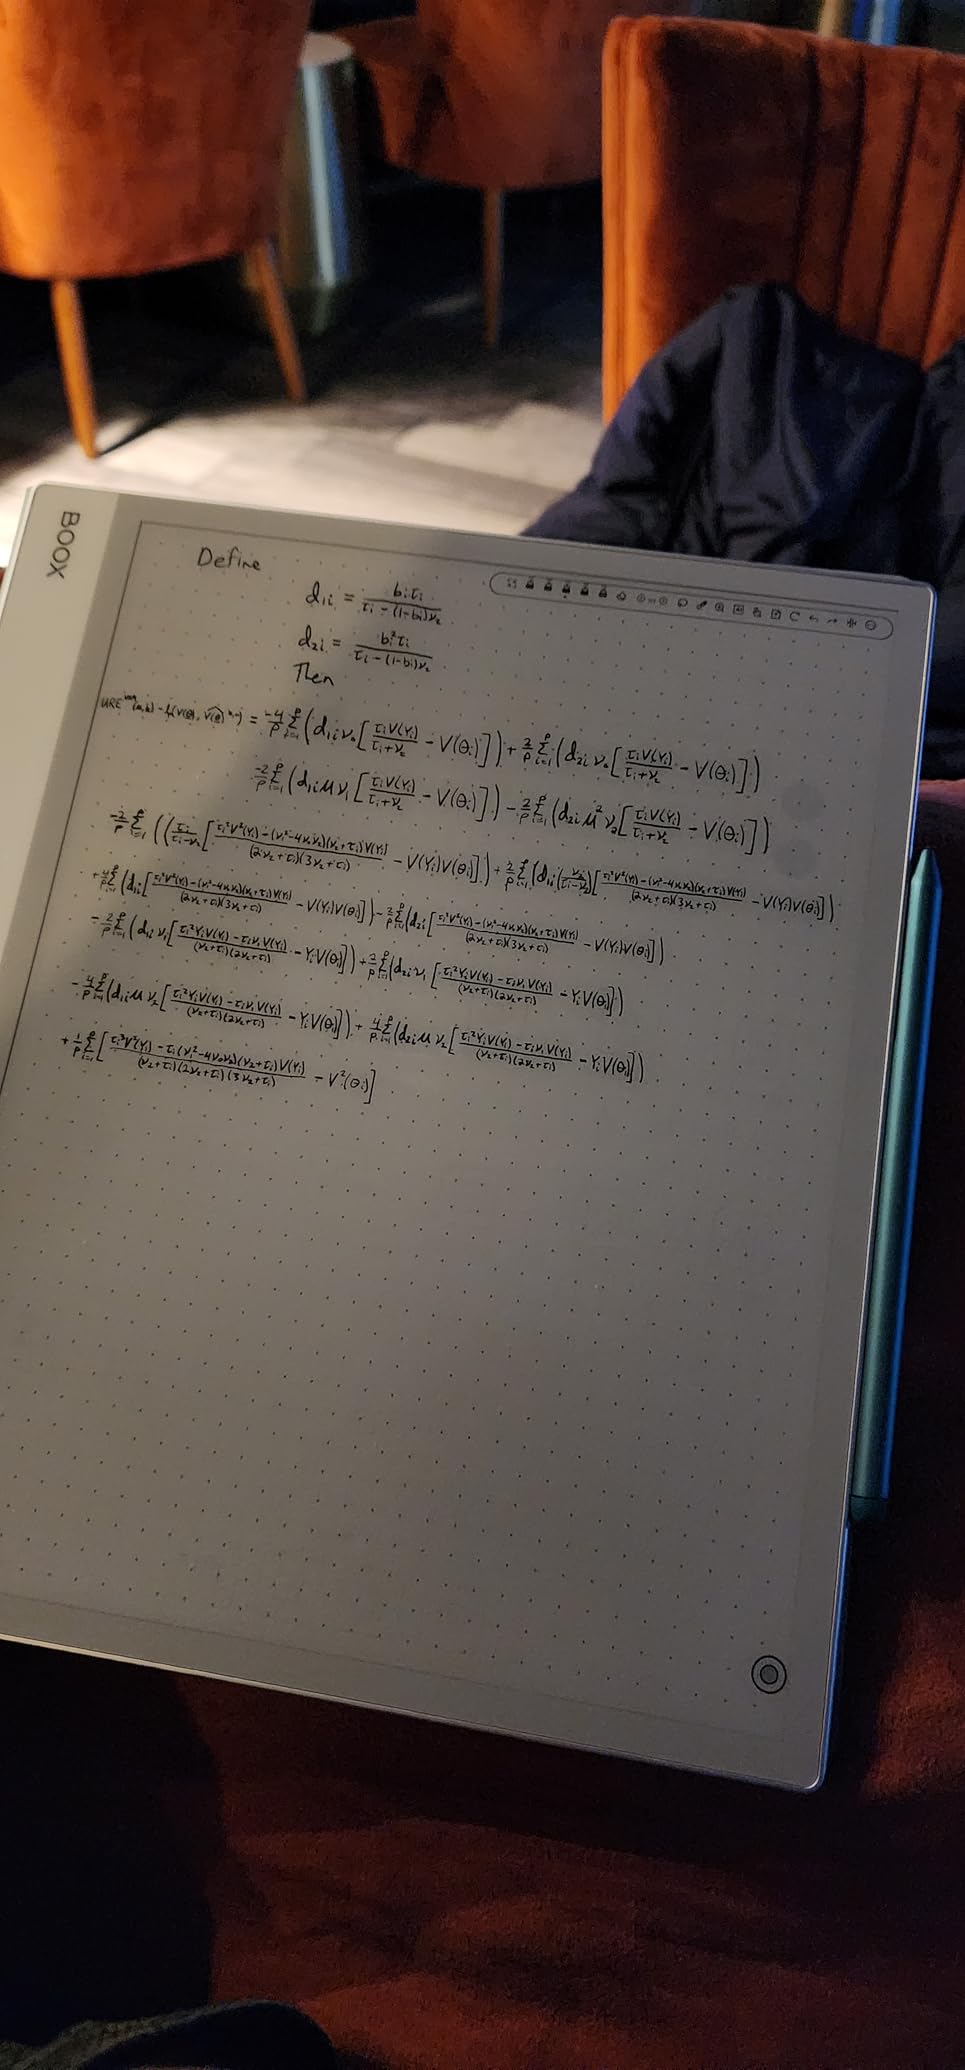 BOOX
Define
d₁ᵢ = bᵢτᵢ / (τᵢ − (1−bᵢ)ν₂)
d₂ᵢ = bᵢ²τᵢ / (τᵢ − (1−bᵢ)ν₂)
Then
URE = −4/p Σᵢ₌₁ᵖ (d₁ᵢ ν₀ [τᵢV(Yᵢ)/(τᵢ+ν₂) − V(θᵢ)]) + 2/p Σᵢ₌₁ᵖ (d₂ᵢ ν₀ [τᵢV(Yᵢ)/(τᵢ+ν₂) − V(θᵢ)])
−2/p Σᵢ₌₁ᵖ (d₁ᵢ μ ν₁ [τᵢV(Yᵢ)/(τᵢ+ν₂) − V(θᵢ)]) − 2/p Σᵢ₌₁ᵖ (d₂ᵢ μ² ν₂ [τᵢV(Yᵢ)/(τᵢ+ν₂) − V(θᵢ)])
−2/p Σᵢ₌₁ᵖ ((τᵢ/(τᵢ−ν₂) [(τᵢ²V²(Yᵢ) − (ν₁²−4ν₀ν₂)(ν₂+τᵢ)V(Yᵢ))/((2ν₂+τᵢ)(3ν₂+τᵢ)) − V(Yᵢ)V(θᵢ)]) + 2/p Σᵢ₌₁ᵖ (d₁ᵢ [(τᵢ²V²(Yᵢ) − (ν₁²−4ν₀ν₂)(ν₂+τᵢ)V(Yᵢ))/((2ν₂+τᵢ)(3ν₂+τᵢ)) − V(Yᵢ)V(θᵢ)])
+4/p Σᵢ₌₁ᵖ (d₁ᵢ [(τᵢ²V²(Yᵢ) − (ν₁²−4ν₀ν₂)(ν₂+τᵢ)V(Yᵢ))/((2ν₂+τᵢ)(3ν₂+τᵢ)) − V(Yᵢ)V(θᵢ)]) − 2/p Σᵢ₌₁ᵖ (d₂ᵢ [(τᵢ²V²(Yᵢ) − (ν₁²−4ν₀ν₂)(ν₂+τᵢ)V(Yᵢ))/((2ν₂+τᵢ)(3ν₂+τᵢ)) − V(Yᵢ)V(θᵢ)])
−2/p Σᵢ₌₁ᵖ (d₁ᵢ ν₁ [(τᵢ²YᵢV(Yᵢ) − τᵢν₁V(Yᵢ))/((ν₂+τᵢ)(2ν₂+τᵢ)) − YᵢV(θᵢ)]) + 2/p Σᵢ₌₁ᵖ (d₂ᵢ ν₁ [(τᵢ²YᵢV(Yᵢ) − τᵢν₁V(Yᵢ))/((ν₂+τᵢ)(2ν₂+τᵢ)) − YᵢV(θᵢ)])
−4/p Σᵢ₌₁ᵖ (d₁ᵢ μ ν₂ [(τᵢ²YᵢV(Yᵢ) − τᵢν₁V(Yᵢ))/((ν₂+τᵢ)(2ν₂+τᵢ)) − YᵢV(θᵢ)]) + 4/p Σᵢ₌₁ᵖ (d₂ᵢ μ ν₂ [(τᵢ²YᵢV(Yᵢ) − τᵢν₁V(Yᵢ))/((ν₂+τᵢ)(2ν₂+τᵢ)) − YᵢV(θᵢ)])
+1/p Σᵢ₌₁ᵖ [(τᵢ³V²(Yᵢ) − τᵢ(ν₁²−4ν₀ν₂)(ν₂+τᵢ)V(Yᵢ))/((ν₂+τᵢ)(2ν₂+τᵢ)(3ν₂+τᵢ)) − V²(θᵢ)]